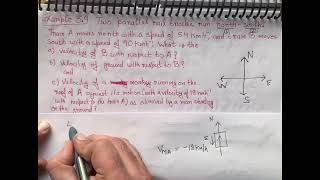 Example 3.9 Two parallel rail tracks run north-south.
Train A moves north with a speed of 54 km h⁻¹, and train B moves
South with a speed of 90 km h⁻¹. What is the
a) velocity of B with respect to A?
b) velocity of ground with respect to B?
and
c) velocity of a monkey running on the
roof of A against its motion (with a velocity of 18 km h⁻¹
with respect to the train A) as observed by a man standing
on the ground?
N
W
E
S
N
V_MA = -18 Km/h